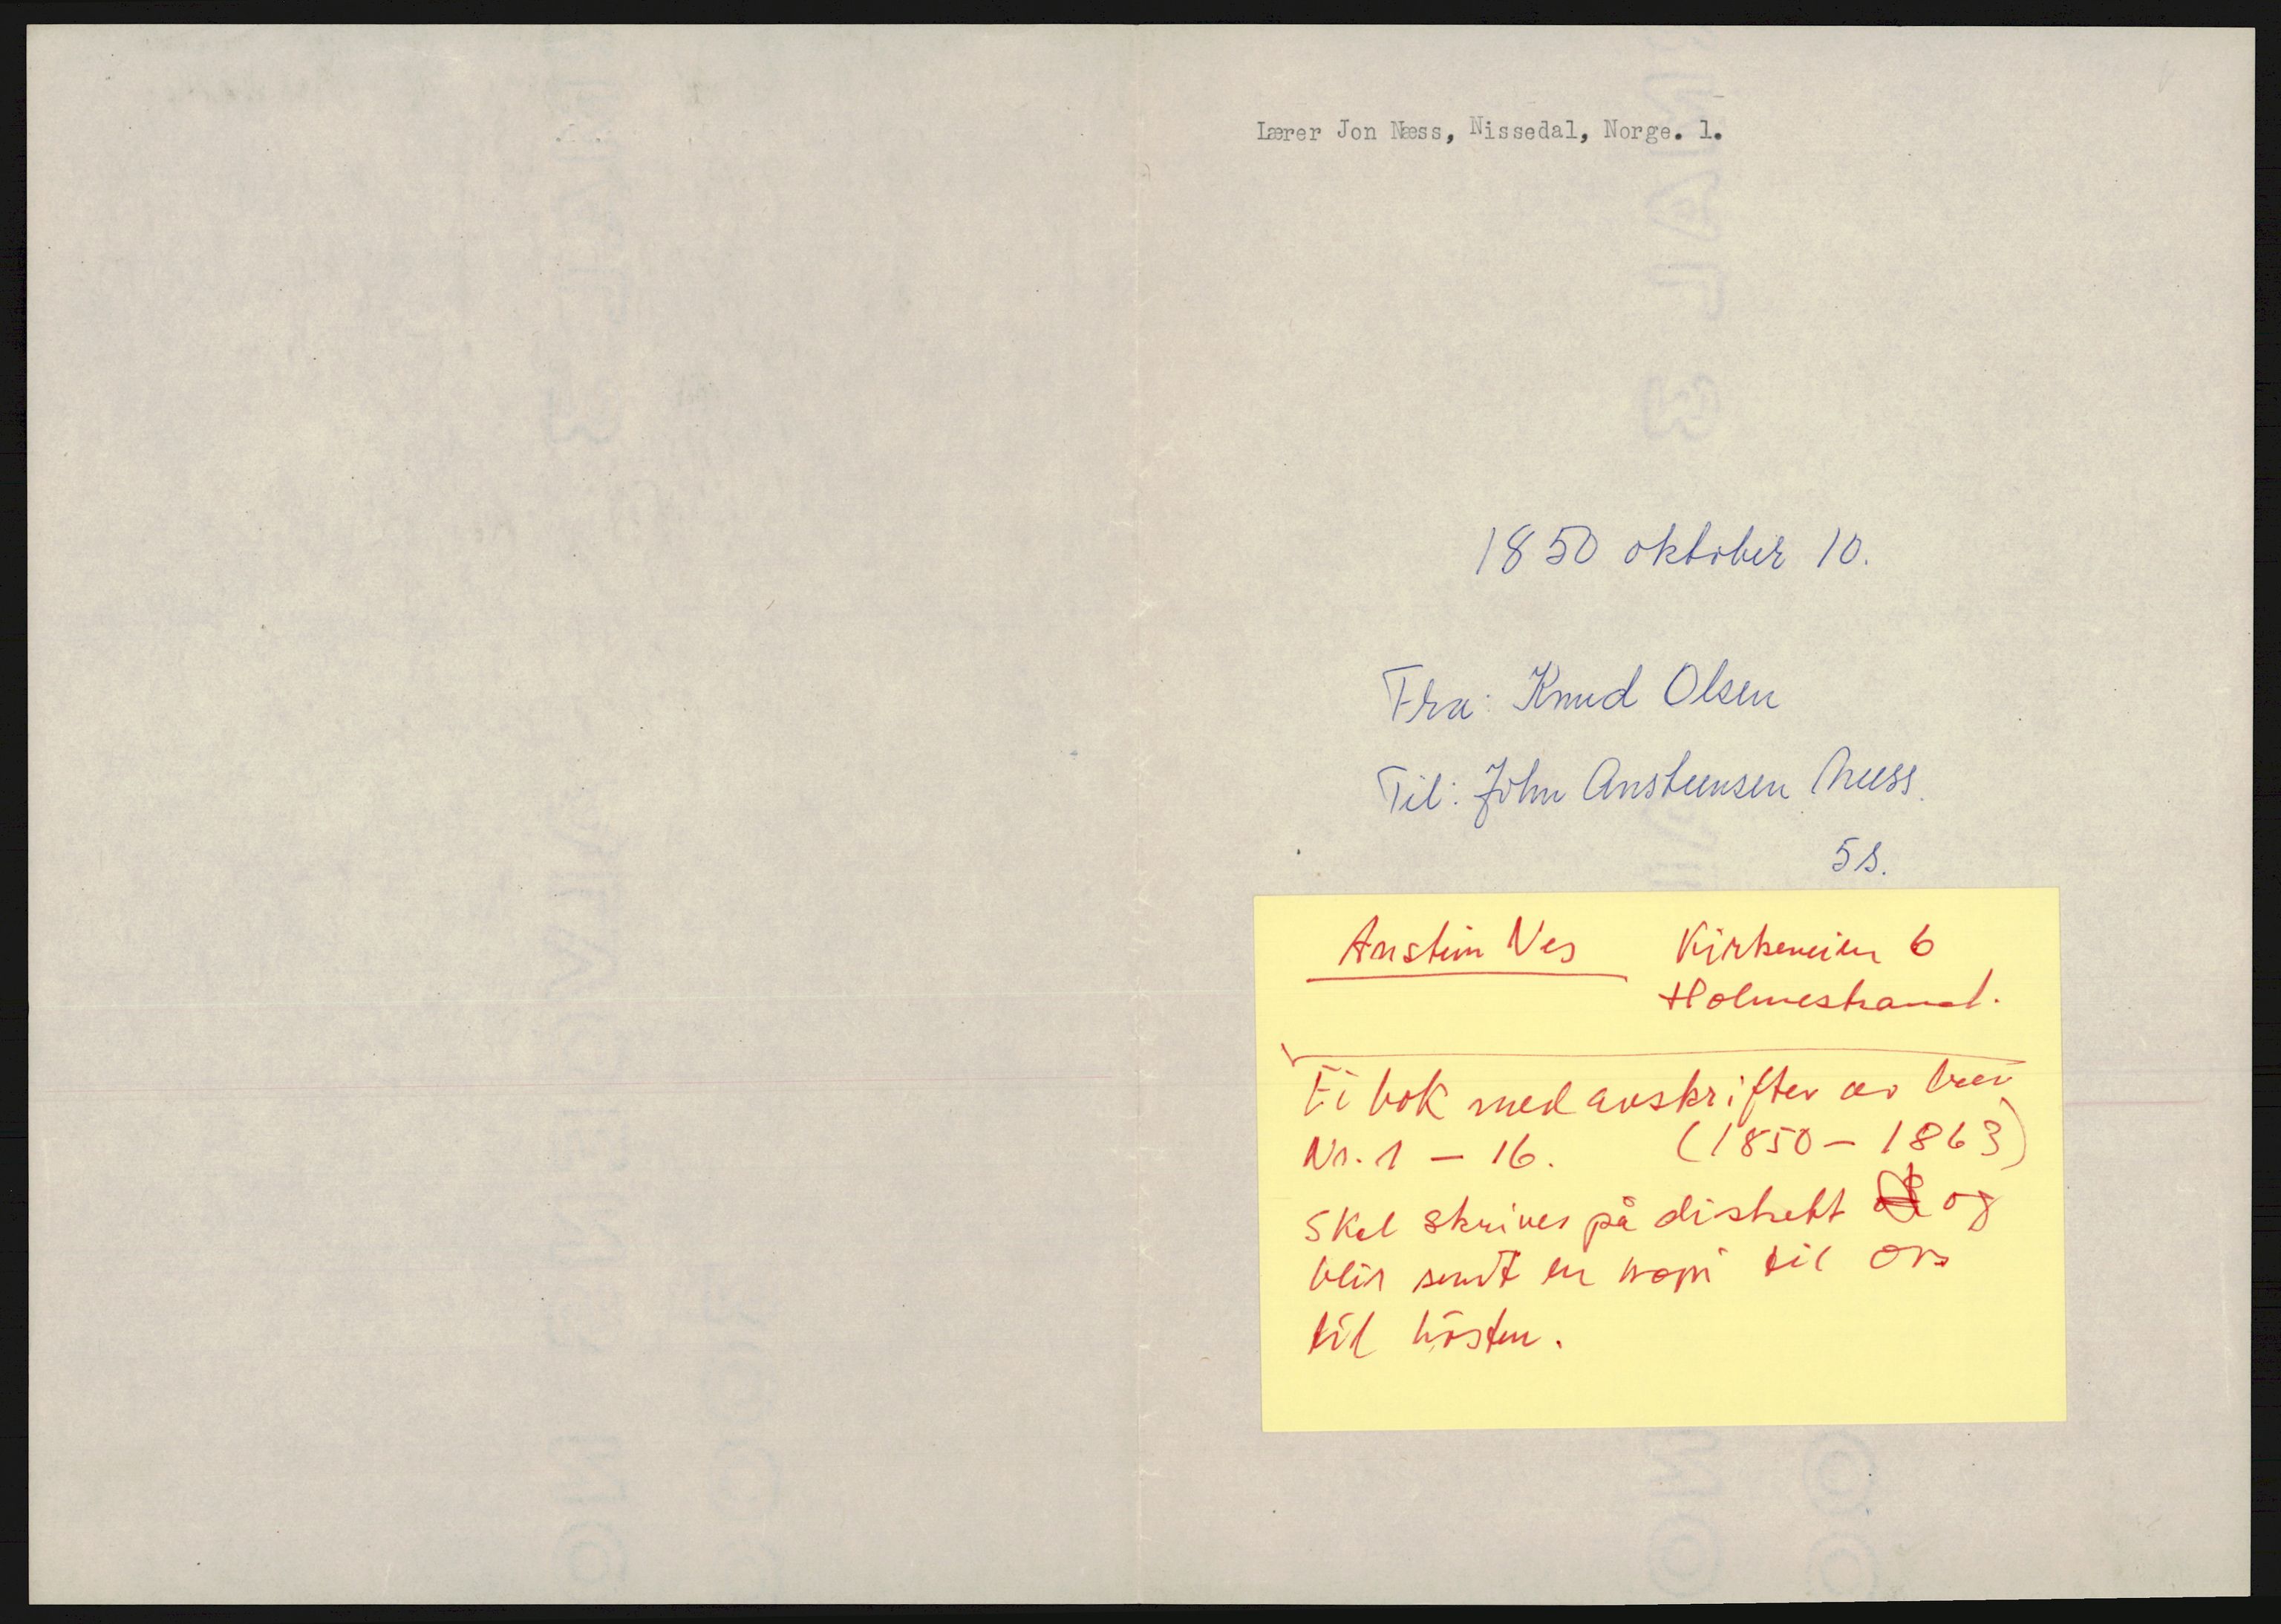 Lærer Jon Næss, Nissedal, Norge. 1.
1850 oktober 10.
Fra: Knud Olsen
Til: John Ansteensen Næss.
5 s.
Anstein Nes Kirkeveien 6
Holmestrand.
Ei bok med avskrifter av brev
Nr. 1 - 16. (1850 - 1863)
Skal skrives på diskett og
blir sendt en kopi til oss
til hösten.